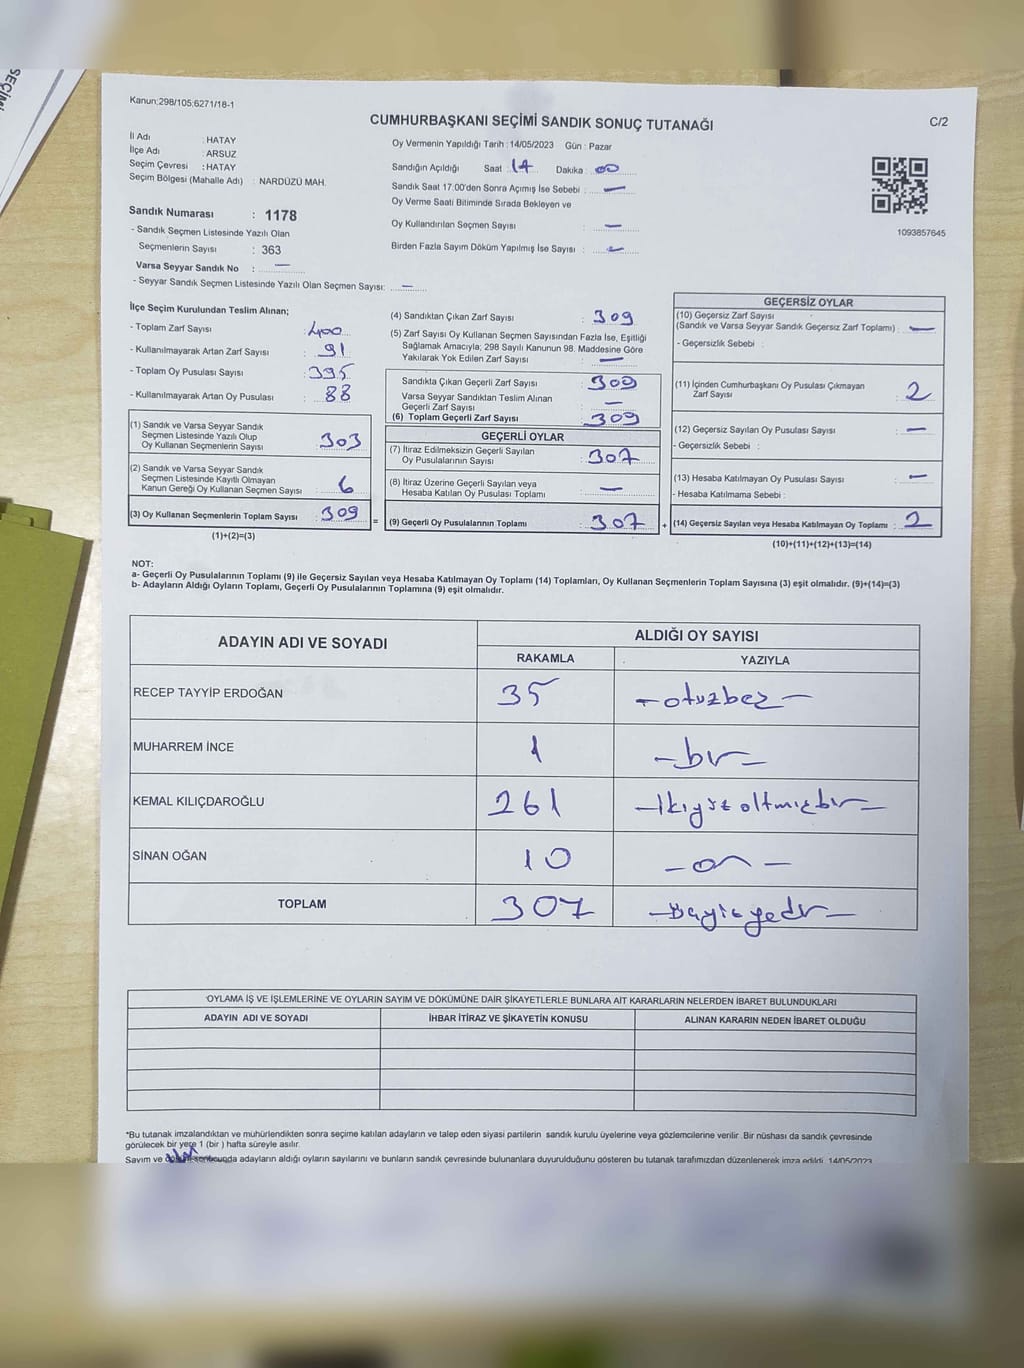 SEÇİMİ
Kanun:298/105:6271/18-1
CUMHURBAŞKANI SEÇİMİ SANDIK SONUÇ TUTANAĞI
C/2
İl Adı : HATAY
İlçe Adı : ARSUZ
Seçim Çevresi : HATAY
Seçim Bölgesi (Mahalle Adı) : NARDÜZÜ MAH.
Oy Vermenin Yapıldığı Tarih : 14/05/2023 Gün : Pazar
Sandığın Açıldığı Saat 14 Dakika 00
Sandık Saat 17:00'den Sonra Açımış İse Sebebi : —
Oy Verme Saati Bitiminde Sırada Bekleyen ve
Oy Kullandırılan Seçmen Sayısı : —
Birden Fazla Sayım Döküm Yapılmış İse Sayısı : —
1093857645
Sandık Numarası : 1178
- Sandık Seçmen Listesinde Yazılı Olan
Seçmenlerin Sayısı : 363
Varsa Seyyar Sandık No : —
- Seyyar Sandık Seçmen Listesinde Yazılı Olan Seçmen Sayısı: —
İlçe Seçim Kurulundan Teslim Alınan;
- Toplam Zarf Sayısı : 400
- Kullanılmayarak Artan Zarf Sayısı : 91
- Toplam Oy Pusulası Sayısı : 395
- Kullanılmayarak Artan Oy Pusulası : 88
(1) Sandık ve Varsa Seyyar Sandık
Seçmen Listesinde Yazılı Olup
Oy Kullanan Seçmenlerin Sayısı : 303
(2) Sandık ve Varsa Seyyar Sandık
Seçmen Listesinde Kayıtlı Olmayan
Kanun Gereği Oy Kullanan Seçmen Sayısı : 6
(3) Oy Kullanan Seçmenlerin Toplam Sayısı : 309
(1)+(2)=(3)
(4) Sandıktan Çıkan Zarf Sayısı : 309
(5) Zarf Sayısı Oy Kullanan Seçmen Sayısından Fazla İse, Eşitliği
Sağlamak Amacıyla; 298 Sayılı Kanunun 98. Maddesine Göre
Yakılarak Yok Edilen Zarf Sayısı : —
Sandıkta Çıkan Geçerli Zarf Sayısı : 309
Varsa Seyyar Sandıktan Teslim Alınan
Geçerli Zarf Sayısı : —
(6) Toplam Geçerli Zarf Sayısı : 309
GEÇERLİ OYLAR
(7) İtiraz Edilmeksizin Geçerli Sayılan
Oy Pusulalarının Sayısı : 307
(8) İtiraz Üzerine Geçerli Sayılan veya
Hesaba Katılan Oy Pusulası Toplamı : —
= (9) Geçerli Oy Pusulalarının Toplamı : 307 +
GEÇERSİZ OYLAR
(10) Geçersiz Zarf Sayısı
(Sandık ve Varsa Seyyar Sandık Geçersiz Zarf Toplamı) : —
- Geçersizlik Sebebi :
(11) İçinden Cumhurbaşkanı Oy Pusulası Çıkmayan
Zarf Sayısı : 2
(12) Geçersiz Sayılan Oy Pusulası Sayısı : —
- Geçersizlik Sebebi :
(13) Hesaba Katılmayan Oy Pusulası Sayısı : —
- Hesaba Katılmama Sebebi :
(14) Geçersiz Sayılan veya Hesaba Katılmayan Oy Toplamı : 2
(10)+(11)+(12)+(13)=(14)
NOT:
a- Geçerli Oy Pusulalarının Toplamı (9) ile Geçersiz Sayılan veya Hesaba Katılmayan Oy Toplamı (14) Toplamları, Oy Kullanan Seçmenlerin Toplam Sayısına (3) eşit olmalıdır. (9)+(14)=(3)
b- Adayların Aldığı Oyların Toplamı, Geçerli Oy Pusulalarının Toplamına (9) eşit olmalıdır.
ADAYIN ADI VE SOYADI ALDIĞI OY SAYISI
RAKAMLA YAZIYLA
RECEP TAYYİP ERDOĞAN 35 — otuzbeş —
MUHARREM İNCE 1 — bir —
KEMAL KILIÇDAROĞLU 261 — ikiyüzaltmışbir —
SİNAN OĞAN 10 — on —
TOPLAM 307 — üçyüzyedi —
OYLAMA İŞ VE İŞLEMLERİNE VE OYLARIN SAYIM VE DÖKÜMÜNE DAİR ŞİKAYETLERLE BUNLARA AİT KARARLARIN NELERDEN İBARET BULUNDUKLARI
ADAYIN ADI VE SOYADI İHBAR İTİRAZ VE ŞİKAYETİN KONUSU ALINAN KARARIN NEDEN İBARET OLDUĞU
*Bu tutanak imzalandıktan ve mühürlendikten sonra seçime katılan adayların ve talep eden siyasi partilerin sandık kurulu üyelerine veya gözlemcilerine verilir. Bir nüshası da sandık çevresinde
görülecek bir yere 1 (bir ) hafta süreyle asılır.
Sayım ve döküm sonucunda adayların aldığı oyların sayılarını ve bunların sandık çevresinde bulunanlara duyurulduğunu gösteren bu tutanak tarafımızdan düzenlenerek imza edildi. 14/05/2023